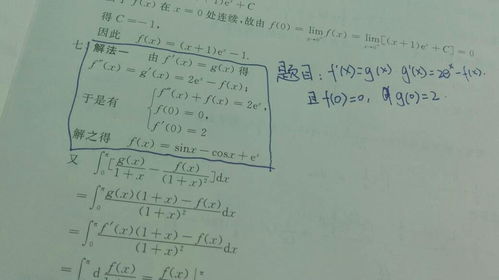 于 f(x) 在 x = 0 处连续,故由 f(0) = lim f(x) = lim[(x+1)eˣ + C] = 0
得 C = −1,
因此 f(x) = (x+1)eˣ − 1.
七 解法一 由 f′(x) = g(x) 得
f″(x) = g′(x) = 2eˣ − f(x);
于是有 { f″(x) + f(x) = 2eˣ,
f(0) = 0,
f′(0) = 2
解之得 f(x) = sinx − cosx + eˣ
题目: f′(x)=g(x) g′(x)=2eˣ−f(x).
且 f(0)=0, g(0)=2.
又 ∫₀^π [g(x)/(1+x) − f(x)/(1+x)²]dx
= ∫₀^π [g(x)(1+x) − f(x)]/(1+x)² dx
= ∫₀^π [f′(x)(1+x) − f(x)]/(1+x)² dx
= ∫₀^π d f(x)/ = f(x)/ |^π